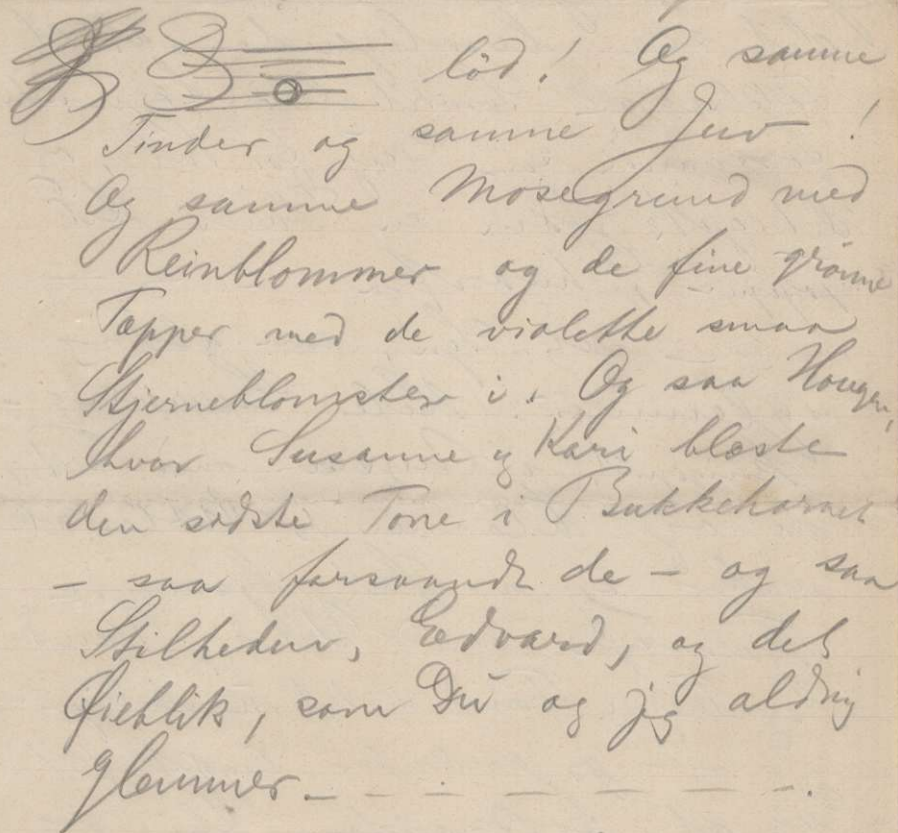 lød! Og samme
Tinder og samme Juv!
Og samme Mosegrund med
Reinblommer og de fine grønne
Tæpper med de violette smaa
Stjerneblomster i. Og saa Haugen,
hvor Susanne og Kari blæste
den sidste Tone i Bukkehornet
– saa forsvandt de – og saa
Stilheden, Edvard, og det
Øieblik, som Du og jeg aldrig
glemmer – – – – – – – .